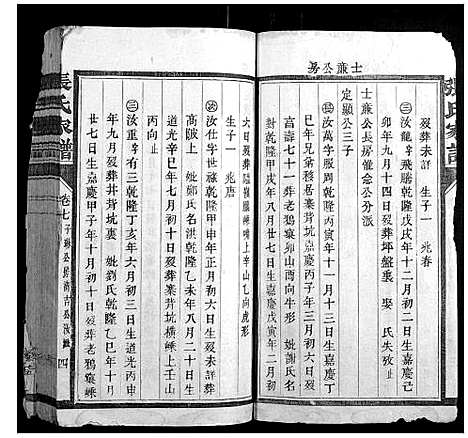 張氏家譜
士䕠公房
歿葬未詳 生子一 兆春
汝龍字飛勝乾隆戊戌年十二月初二日生嘉慶己
卯年九月十四日歿葬坪盤東 娶 氏失攷止
士䕠公長房催念公分派
定顯公三子
萬字服周乾隆丙寅年十一月十三日生嘉慶
巳年兄弟移居寨背坑嘉慶丙子年三月初六日
富壽七十一葬老鴉窠卯山酉向牛形 妣謝氏名
對乾隆甲戌年八月廿七日生嘉慶戊寅年二月初
六日歿葬 上辛山乙向虎形
生子一 兆唐
汝仕字世祿乾隆甲申年正月初 日歿葬
高陂上 妣鄭氏名洪乾隆乙 年八月二十日生
道光辛巳年七月初十日歿葬寨背坑橫嵊上壬山
丙向止
汝重字有三乾隆丁亥年六月初三日生道光丙申
年九月歿葬井背坑裏 妣劉氏乾隆乙巳年十月
廿七日生嘉慶甲子年十月初十日歿葬老鴉窠嵊
張氏家譜
卷七
四